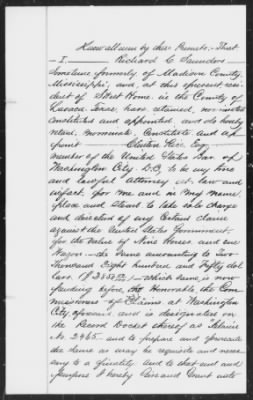 Know all men by these Presents. That
I Richard C Saunders
Sometime formerly of Madison County
Mississippi, and, at this present resi
dent of Sweet Home in the County of
Lavaca Texas, have retained, nominated
constituted and appointed, and do hereby
retain, nominate, Constitute and ap
point Esq
member of the United States Bar of
Washington City D.C, to be my true
and lawful attorney at law and
in fact, for me and in my name
place and stead to take sole charge
and direction of my Certain claim
against the United States Government.
for the value of Nine Horses and one
Wagon – the same amounting to Two
thousand Eight hundred and fifty dol
lars. – which claim is now
pending before, the Honorable the Com
missioners of Claims, at Washington
City aforesaid, and is designated on
the Record Docket thereof as
No. 2465 – and to prepare and prosecute
the same as may be requisite and neces
sary to a finality and to that end and
purpose I hereby Give and Grant unto